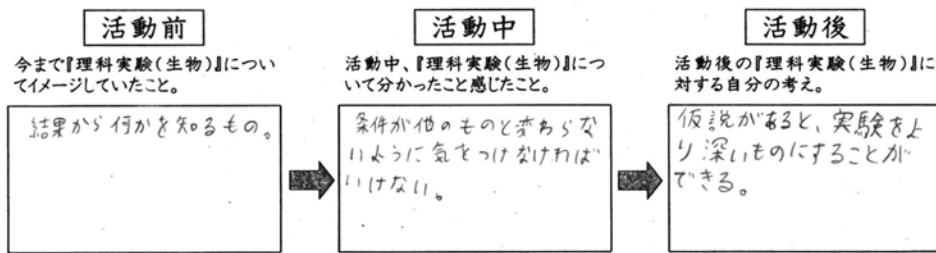 活動前
今まで『理科実験(生物)』につい
てイメージしていたこと。
結果から何かを知るもの。
活動中
活動中、『理科実験(生物)』につ
いて分かったこと感じたこと。
条件が他のものと変わらな
いように気をつけなければ
いけない。
活動後
活動後の『理科実験(生物)』に
対する自分の考え。
仮説があると、実験をよ
り深いものにすることが
できる。